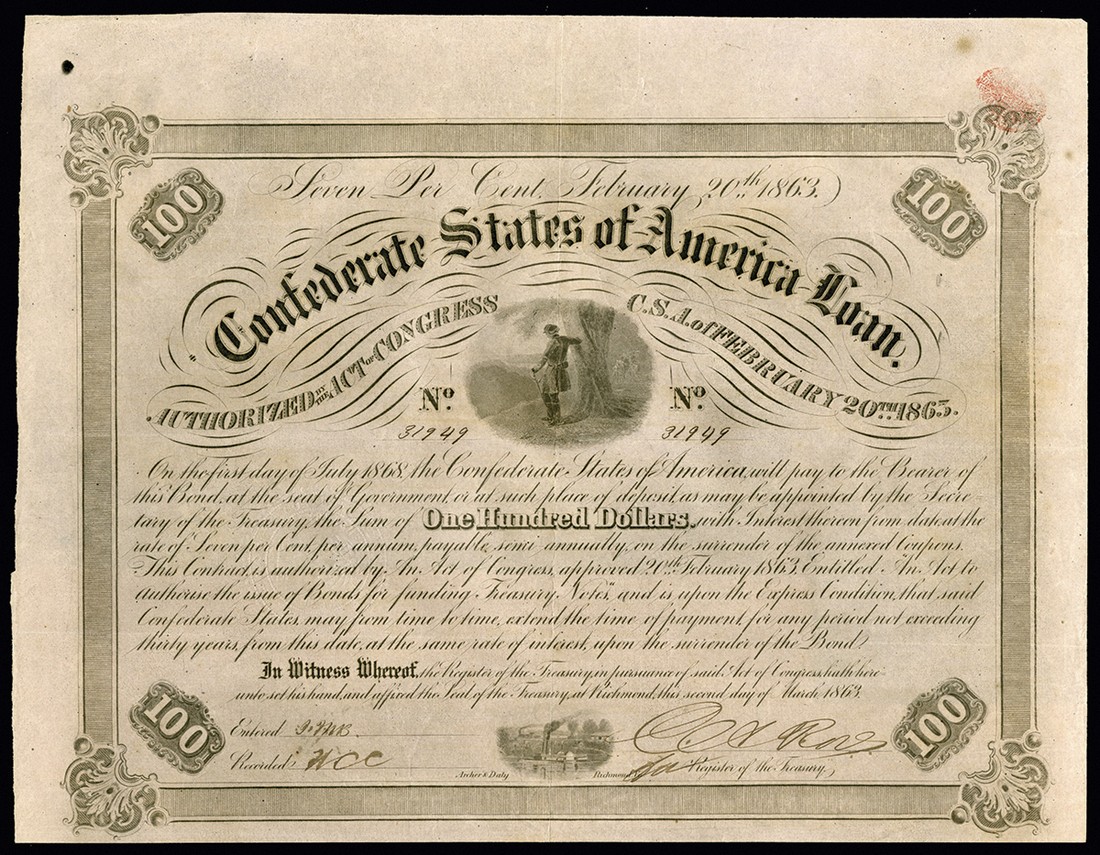 Seven Per Cent, February 20th 1863.
100
100
Confederate States of America Loan.
AUTHORIZED BY THE ACT OF CONGRESS C.S.A. of FEBRUARY 20TH 1863.
No. No.
31949 31949
On the first day of July 1868, the Confederate States of America, will pay to the Bearer of
this Bond, at the seat of Government, or at such place of deposit, as may be appointed by the Secre-
tary of the Treasury, the Sum of One Hundred Dollars. with Interest thereon from date, at the
rate of Seven per Cent, per annum, payable, semi annually, on the surrender of the annexed Coupons.
This Contract, is authorized by An Act of Congress, approved 20th February 1863, Entitled "An Act to
authorise the issue of Bonds for funding Treasury Notes," and is upon the Express Condition, that said
Confederate States, may from time to time, extend the time of payment, for any period not exceeding
thirty years, from this date, at the same rate of interest, upon the surrender of the Bond.
In Witness Whereof, the Register of the Treasury, in pursuance of said Act of Congress, hath here-
unto set his hand, and affixed the Seal of the Treasury, at Richmond, this second day of March 1863.
100
100
Entered
Recorded WCC
Archer & Daly Richmond
Register of the Treasury,